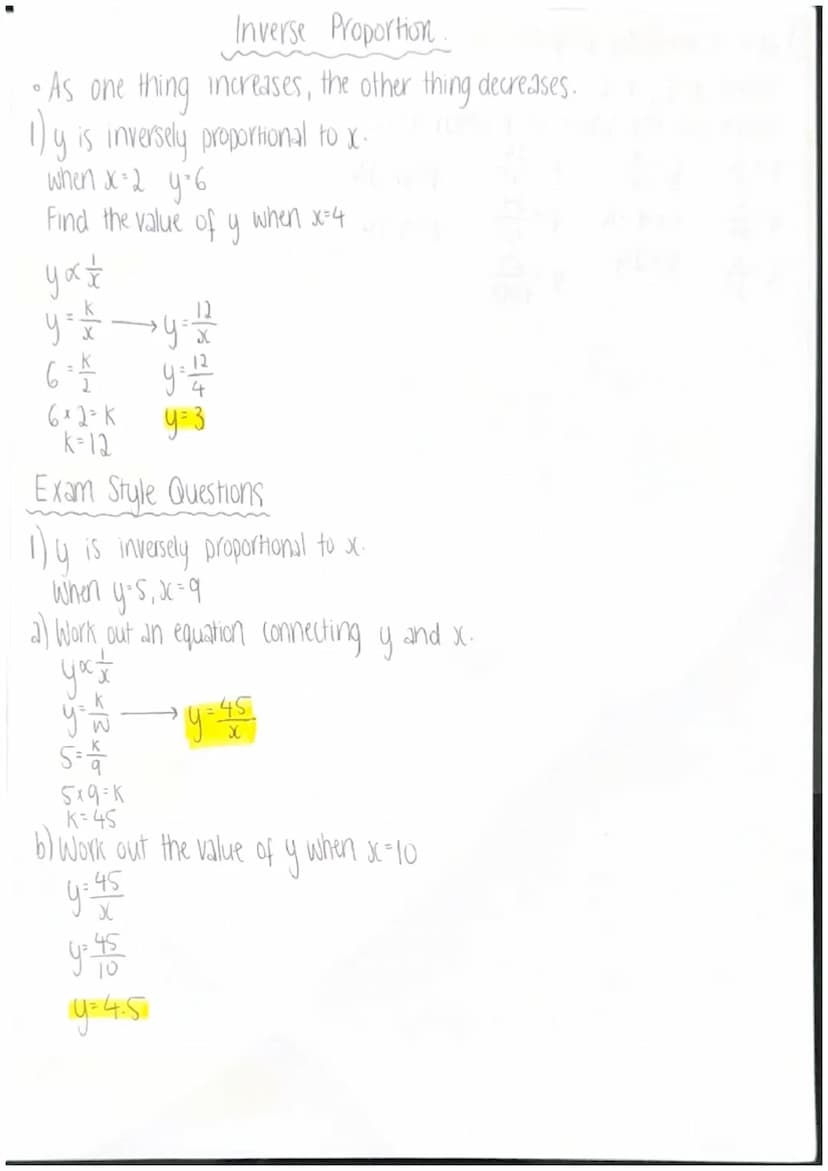 Inverse Proportion.
• As one thing increases, the other thing decreases.
1) y is inversely proportional to x.
when x=2 y=6
Find the value of y when x=4
y ∝ 1/x
y = k/x → y = 12/x
6 = k/2 y = 12/4
6 x 2 = k y = 3
k = 12
Exam Style Questions
1) y is inversely proportional to x.
When y=5, x=9
a) Work out an equation connecting y and x.
y ∝ 1/x
y = k/w → y = 45/x
5 = k/9
5 x 9 = k
k = 45
b) Work out the value of y when x=10
y = 45/x
y = 45/10
y = 4.5